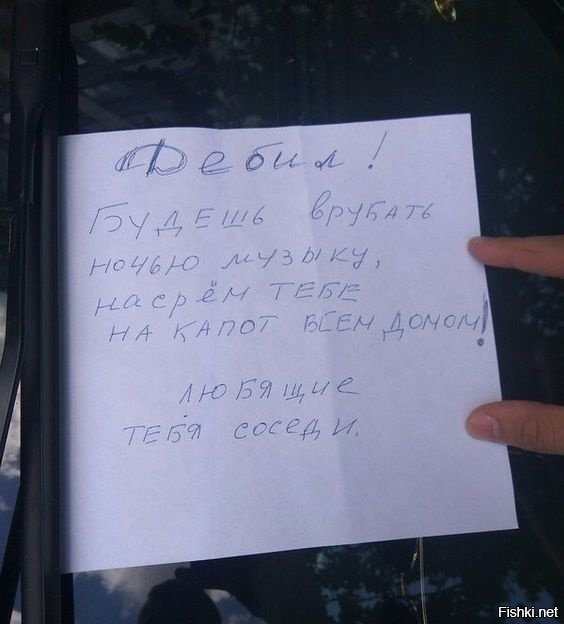 Дебил!
БУДЕШЬ ВРУБАТЬ
НОЧЬЮ МУЗЫКУ,
насрём ТЕБЕ
НА КАПОТ ВСЕМ ДОМОМ!
ЛЮБЯЩИЕ
ТЕБЯ СОСЕДИ.
Fishki.net